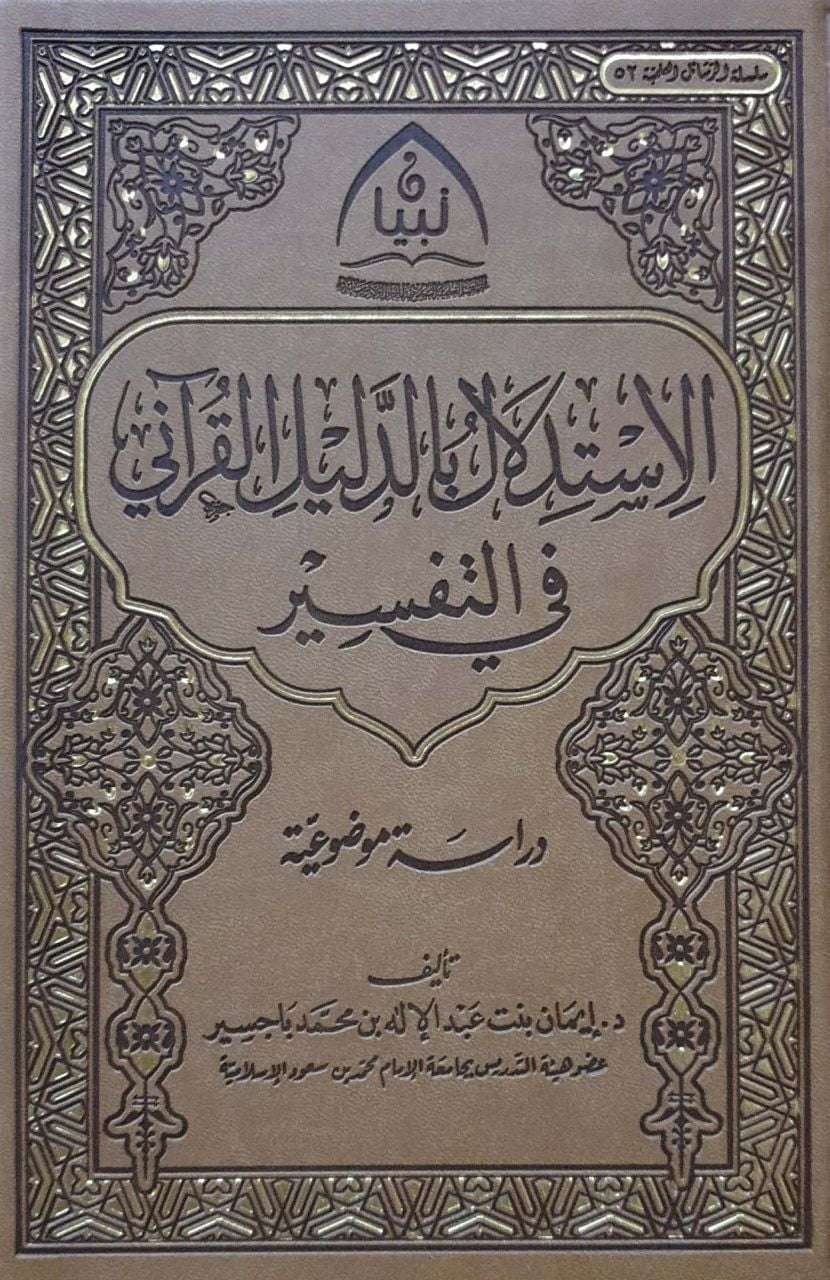 سلسلة الرسائل العلمية ٥٢
تبيان
الِاسْتِدِلَالُ بُالدَّلِيْلِ القُرْآنِي
في التفسِيْر
دراسة موضوعيّة
تأليف
د. إيمان بنت عبد الإله بن محمّد باجسير
عضو هيئة التدريس بجامعة الإمام محمد بن سعود الإسلامية